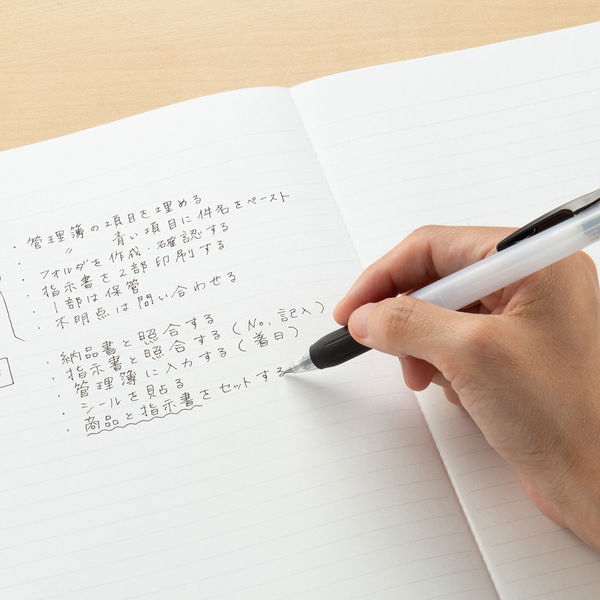 ・管理簿の項目を埋める
・〃 青い項目に件名をペースト
・フォルダを作成・確認する
・指示書を2部印刷する
・1部は保管
・不明点は問い合わせる
・納品書と照合する
・指示書と照合する(No.記入)
・管理簿に入力する(着日)
・シールを貼る
・商品と指示書をセットする